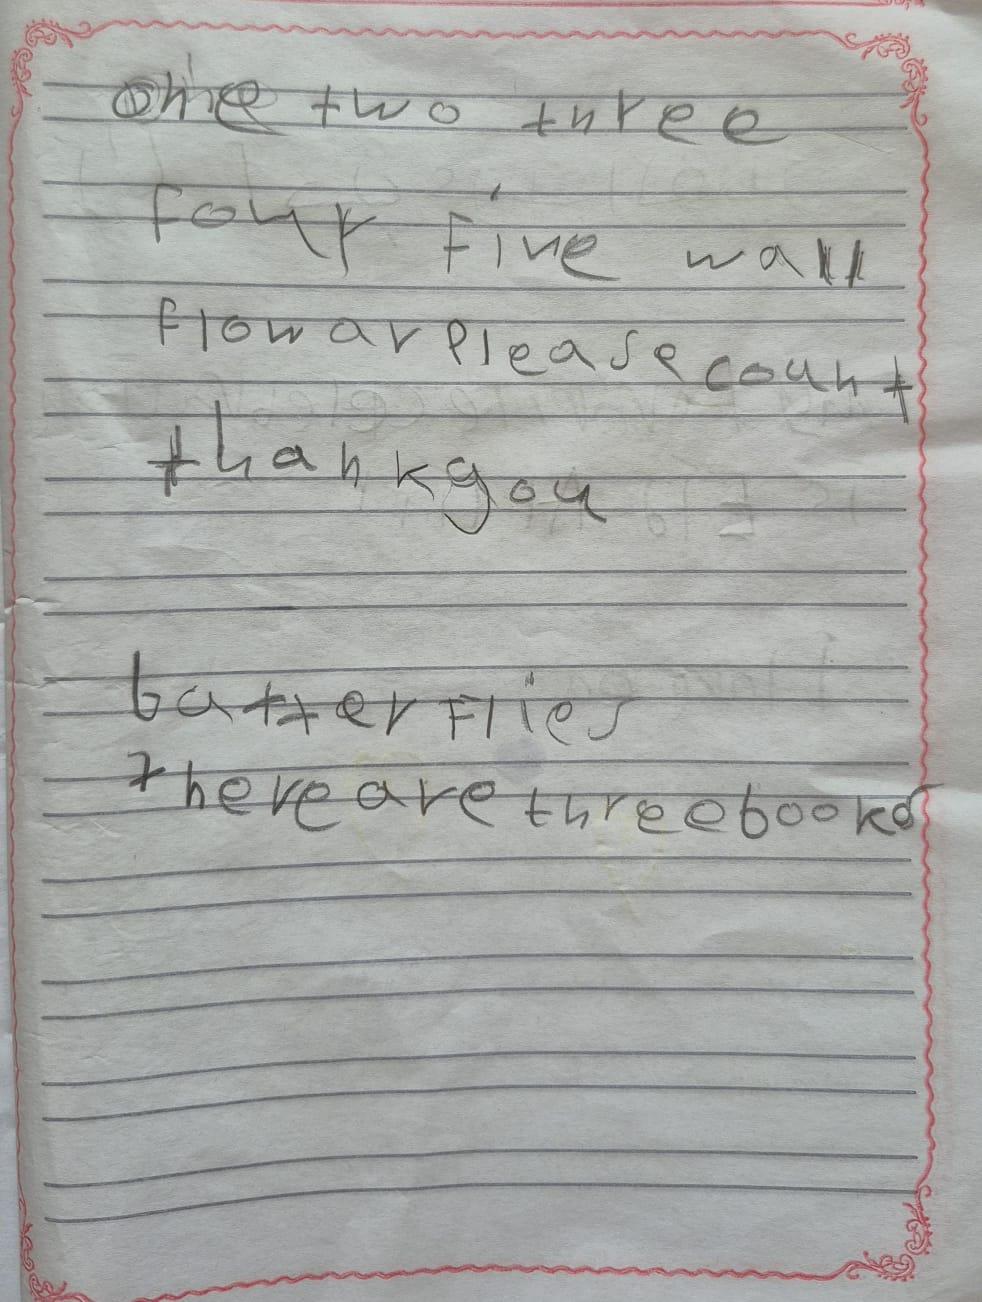 one two three
four five wall
flowar please count
thank you
batterflies
there are three books